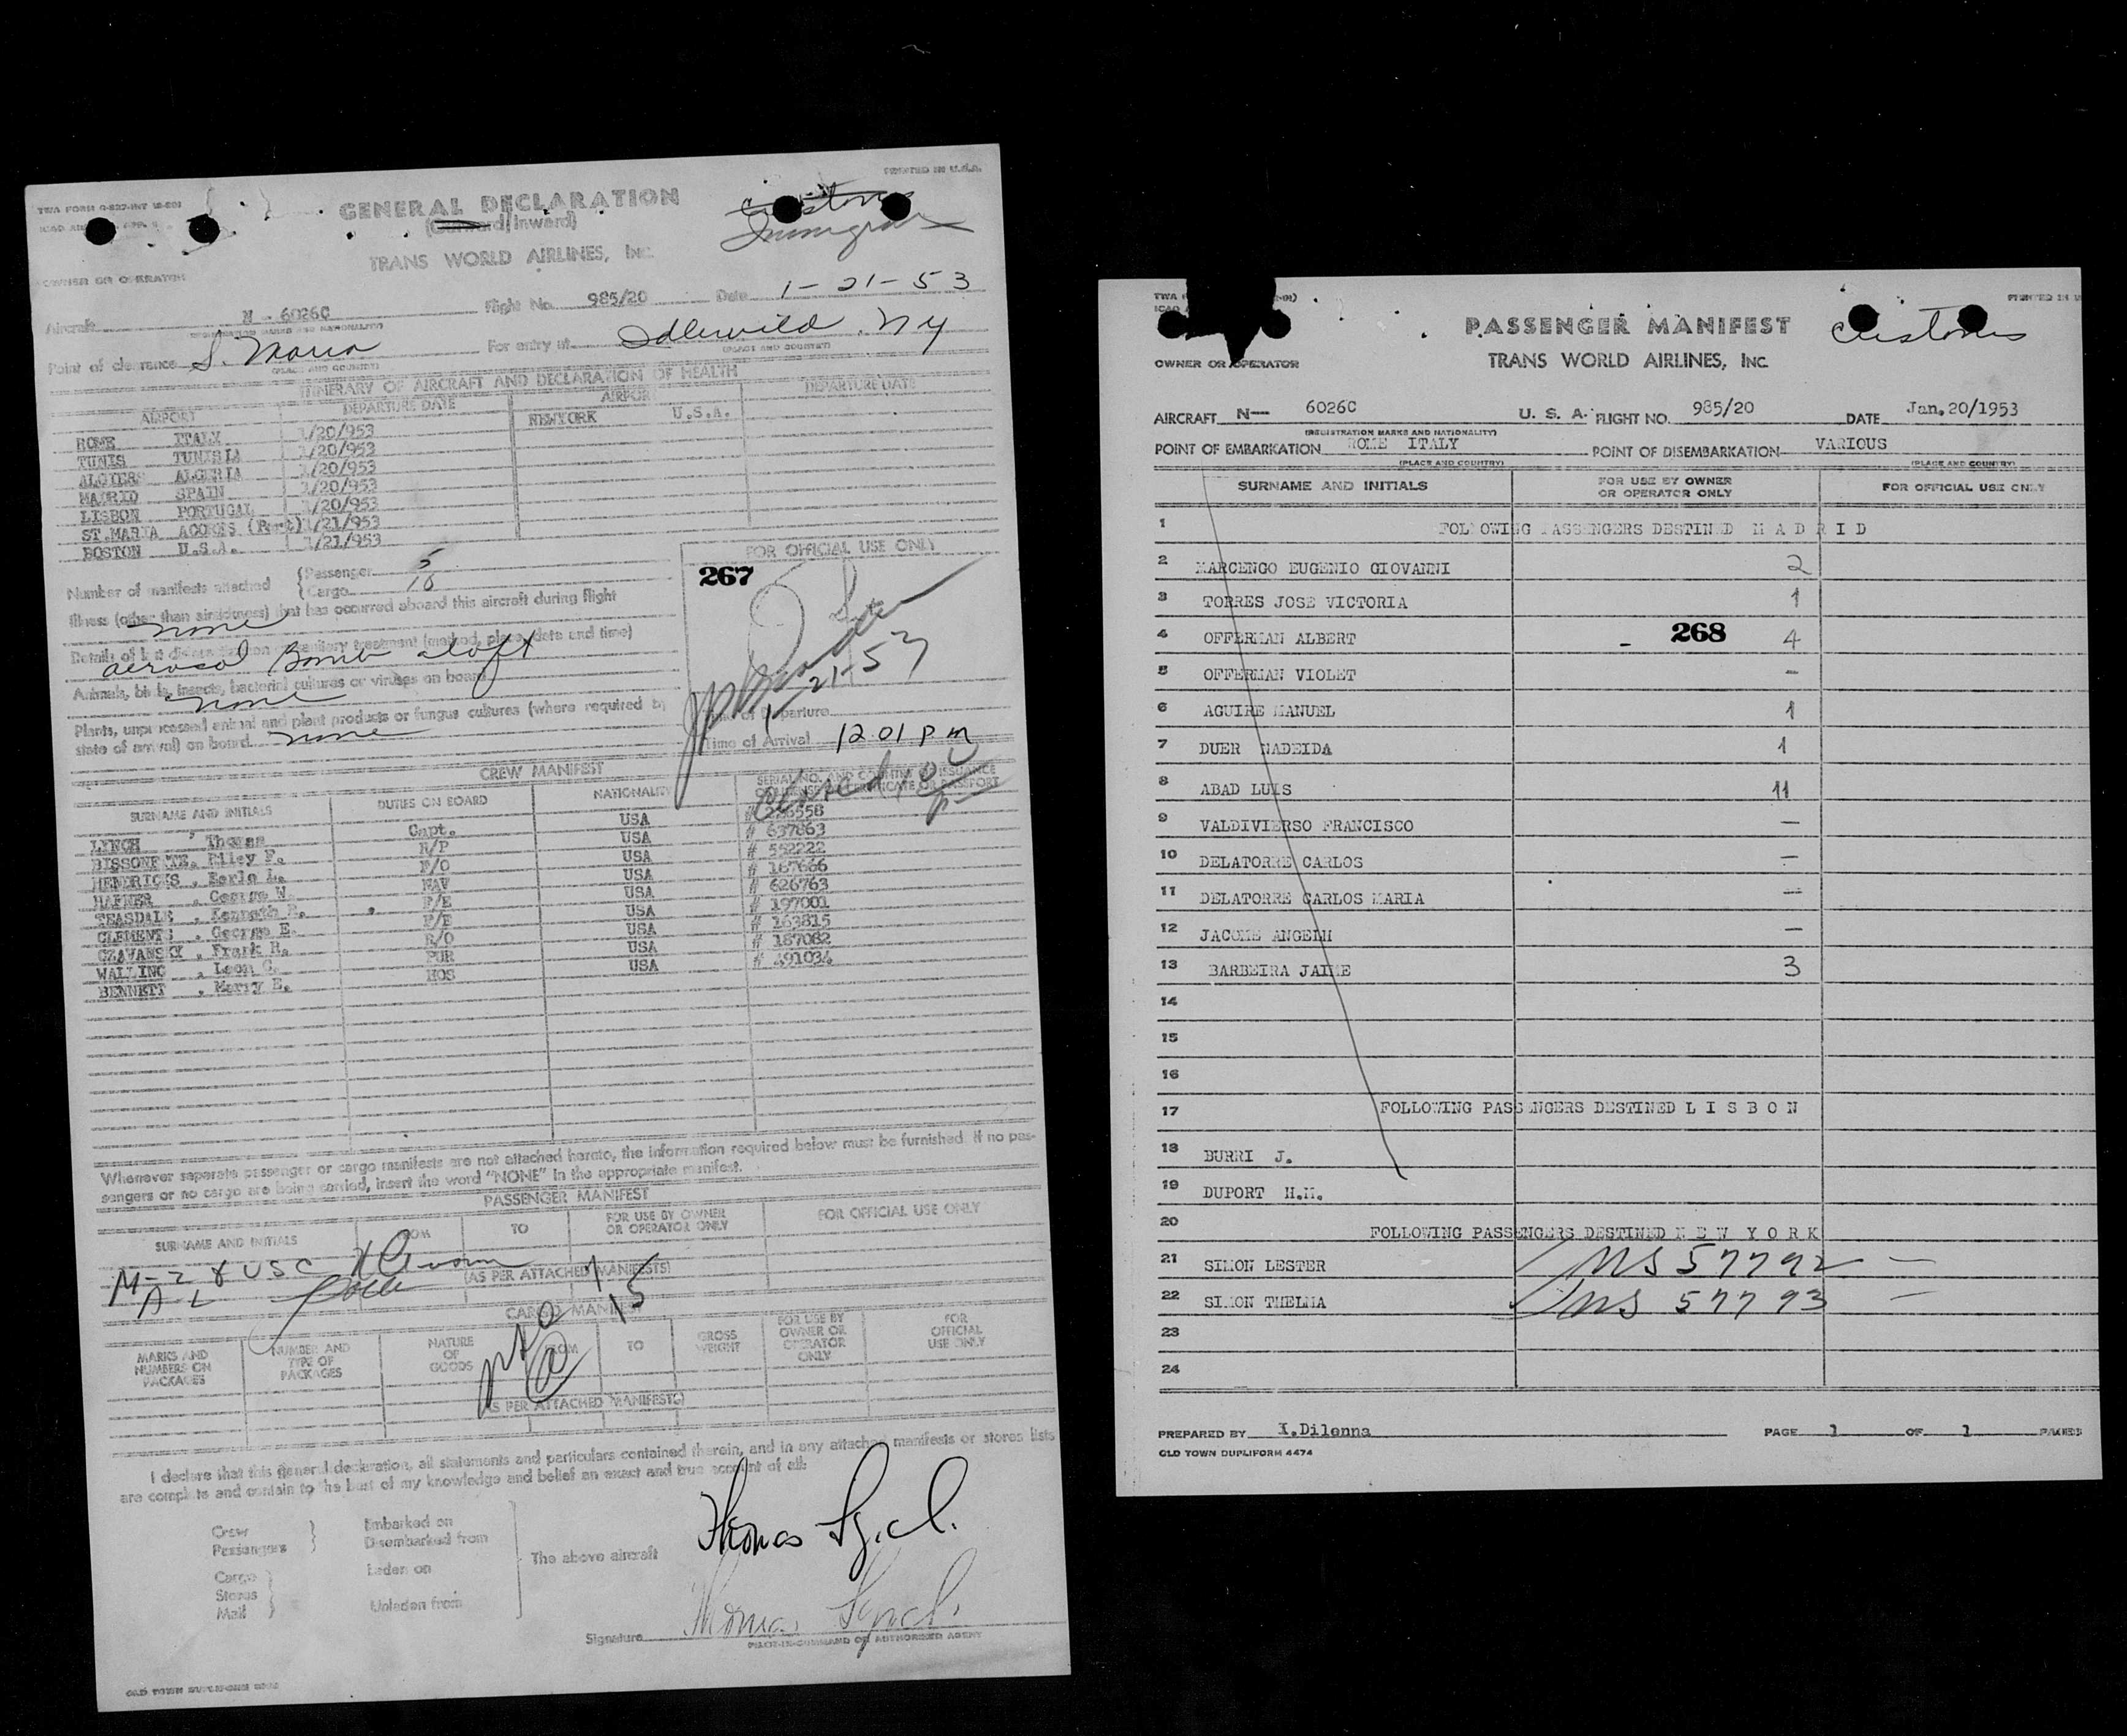 PRINTED IN U.S.A.
GENERAL DECLARATION
(Outward/Inward)
Customs
TRANS WORLD AIRLINES, Inc.
OWNER OR OPERATOR
Aircraft N - 6026C Flight No. 985/20 Date 1-21-53
(REGISTRATION MARKS AND NATIONALITY)
Point of clearance S. Maria For entry at Idlewild, NY
(PLACE AND COUNTRY) (PLACE AND COUNTRY)
ITINERARY OF AIRCRAFT AND DECLARATION OF HEALTH
AIRPORT DEPARTURE DATE AIRPORT DEPARTURE DATE
ROME ITALY 1/20/953 NEWYORK U.S.A.
TUNIS TUNISIA 1/20/953
ALGIERS ALGERIA 1/20/953
MADRID SPAIN 1/20/953
LISBON PORTUGAL 1/20/953
ST.MARIA ACORES (Port) 1/21/953
BOSTON U.S.A. 1/21/953
FOR OFFICIAL USE ONLY
267
Number of manifests attached
Passenger 5
Cargo 10
Illness (other than airsickness) that has occurred aboard this aircraft during flight
none
Details of last disinsectization or sanitary treatment (method, place, date and time)
aerosol Bomb aloft
Animals, birds, insects, bacterial cultures or viruses on board
none
Plants, unprocessed animal and plant products or fungus cultures (where required by
state of arrival) on board none
1-21-53
Time of Departure
Time of Arrival 12 01 P m
CREW MANIFEST
SURNAME AND INITIALS DUTIES ON BOARD NATIONALITY SERIAL NO. AND COUNTRY OF ISSUANCE
OF LICENSE OR CERTIFICATE OR PASSPORT
LYNCH , Thomas Capt. USA # 226558
BISSONETTE. Riley F. R/P USA # 637863
HENDRICKS . Earle L. F/O USA # 552222
HAFNER . George W. NAV USA # 167666
TEASDALE . Kenneth R. F/E USA # 626763
CLEMENTS . George E. F/E USA # 197001
CZAVANSKY . Frank R. R/O USA # 163815
WALLING . Leon C. PUR USA # 187082
BENNETT . Marry E. HOS USA # 491034
Whenever separate passenger or cargo manifests are not attached hereto, the information required below must be furnished. If no pas-
sengers or no cargo are being carried, insert the word "NONE" in the appropriate manifest.
PASSENGER MANIFEST
SURNAME AND INITIALS FROM TO FOR USE BY OWNER OR OPERATOR ONLY FOR OFFICIAL USE ONLY
(AS PER ATTACHED MANIFESTS)
M-2 & USC
15
CARGO MANIFEST
MARKS AND NUMBERS ON PACKAGES NUMBER AND TYPE OF PACKAGES NATURE OF GOODS FROM TO GROSS WEIGHT FOR USE BY OWNER OR OPERATOR ONLY FOR OFFICIAL USE ONLY
(AS PER ATTACHED MANIFESTS)
I declare that this general declaration, all statements and particulars contained therein, and in any attached manifests or stores lists
are complete and contain to the best of my knowledge and belief an exact and true account of all:
Crew
Passengers
Embarked on
Disembarked from
Cargo
Stores
Mail
Laden on
Unladen from
The above aircraft
Thomas Lynch
Signature Thomas Lynch
PILOT-IN-COMMAND OR AUTHORIZED AGENT
PRINTED IN U
PASSENGER MANIFEST
Customs
OWNER OR OPERATOR TRANS WORLD AIRLINES, Inc.
AIRCRAFT N— 6026C U. S. A. FLIGHT NO. 985/20 DATE Jan, 20/1953
(REGISTRATION MARKS AND NATIONALITY)
POINT OF EMBARKATION ROME ITALY POINT OF DISEMBARKATION VARIOUS
(PLACE AND COUNTRY) (PLACE AND COUNTRY)
SURNAME AND INITIALS FOR USE BY OWNER OR OPERATOR ONLY FOR OFFICIAL USE ONLY
1 FOLLOWING PASSENGERS DESTINED M A D R I D
2 MARCENGO EUGENIO GIOVANNI 2
3 TORRES JOSE VICTORIA 1
4 OFFERMAN ALBERT - 268 4
5 OFFERMAN VIOLET —
6 AGUIRE MANUEL 1
7 DUER NADEIDA 1
8 ABAD LUIS 11
9 VALDIVIERSO FRANCISCO —
10 DELATORRE CARLOS —
11 DELATORRE CARLOS MARIA —
12 JACOME ANGELH —
13 BARBEIRA JAIME 3
14
15
16
17 FOLLOWING PASSENGERS DESTINED L I S B O N
18 BURRI J.
19 DUPORT H.M.
20 FOLLOWING PASSENGERS DESTINED N E W Y O R K
21 SIMON LESTER MS 57792 —
22 SIMON THELMA MS 57793 —
23
24
PREPARED BY I.Dilenna PAGE 1 OF 1 PAGES
OLD TOWN DUPLIFORM 4474